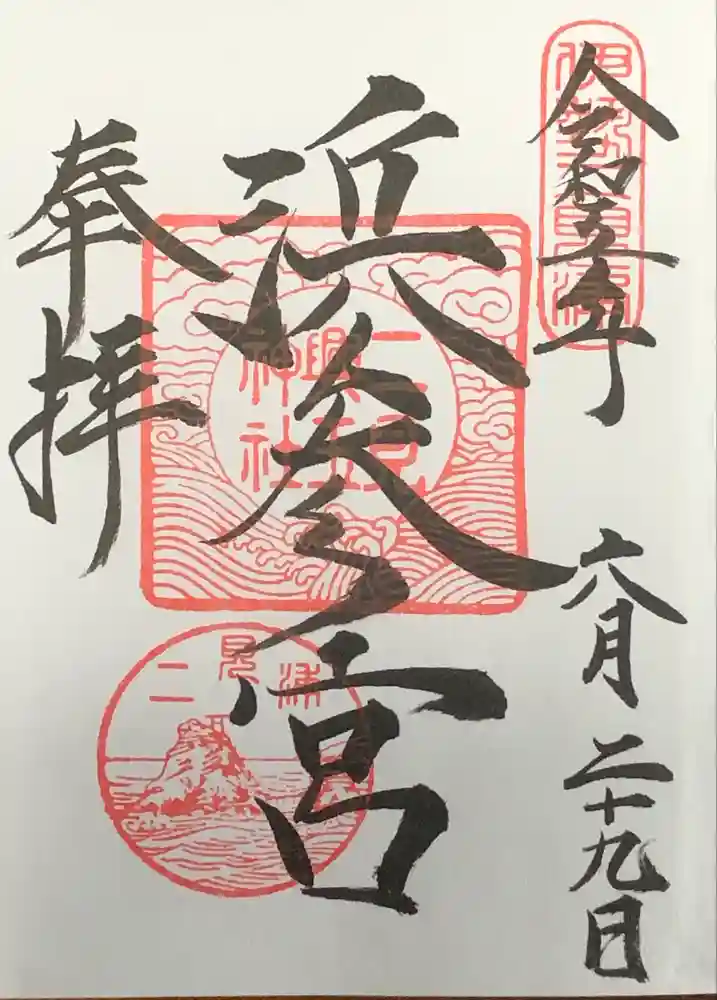 伊勢二見浦
令和五年 六月 二十九日
浜参宮
二見興玉神社
二見浦
奉拝